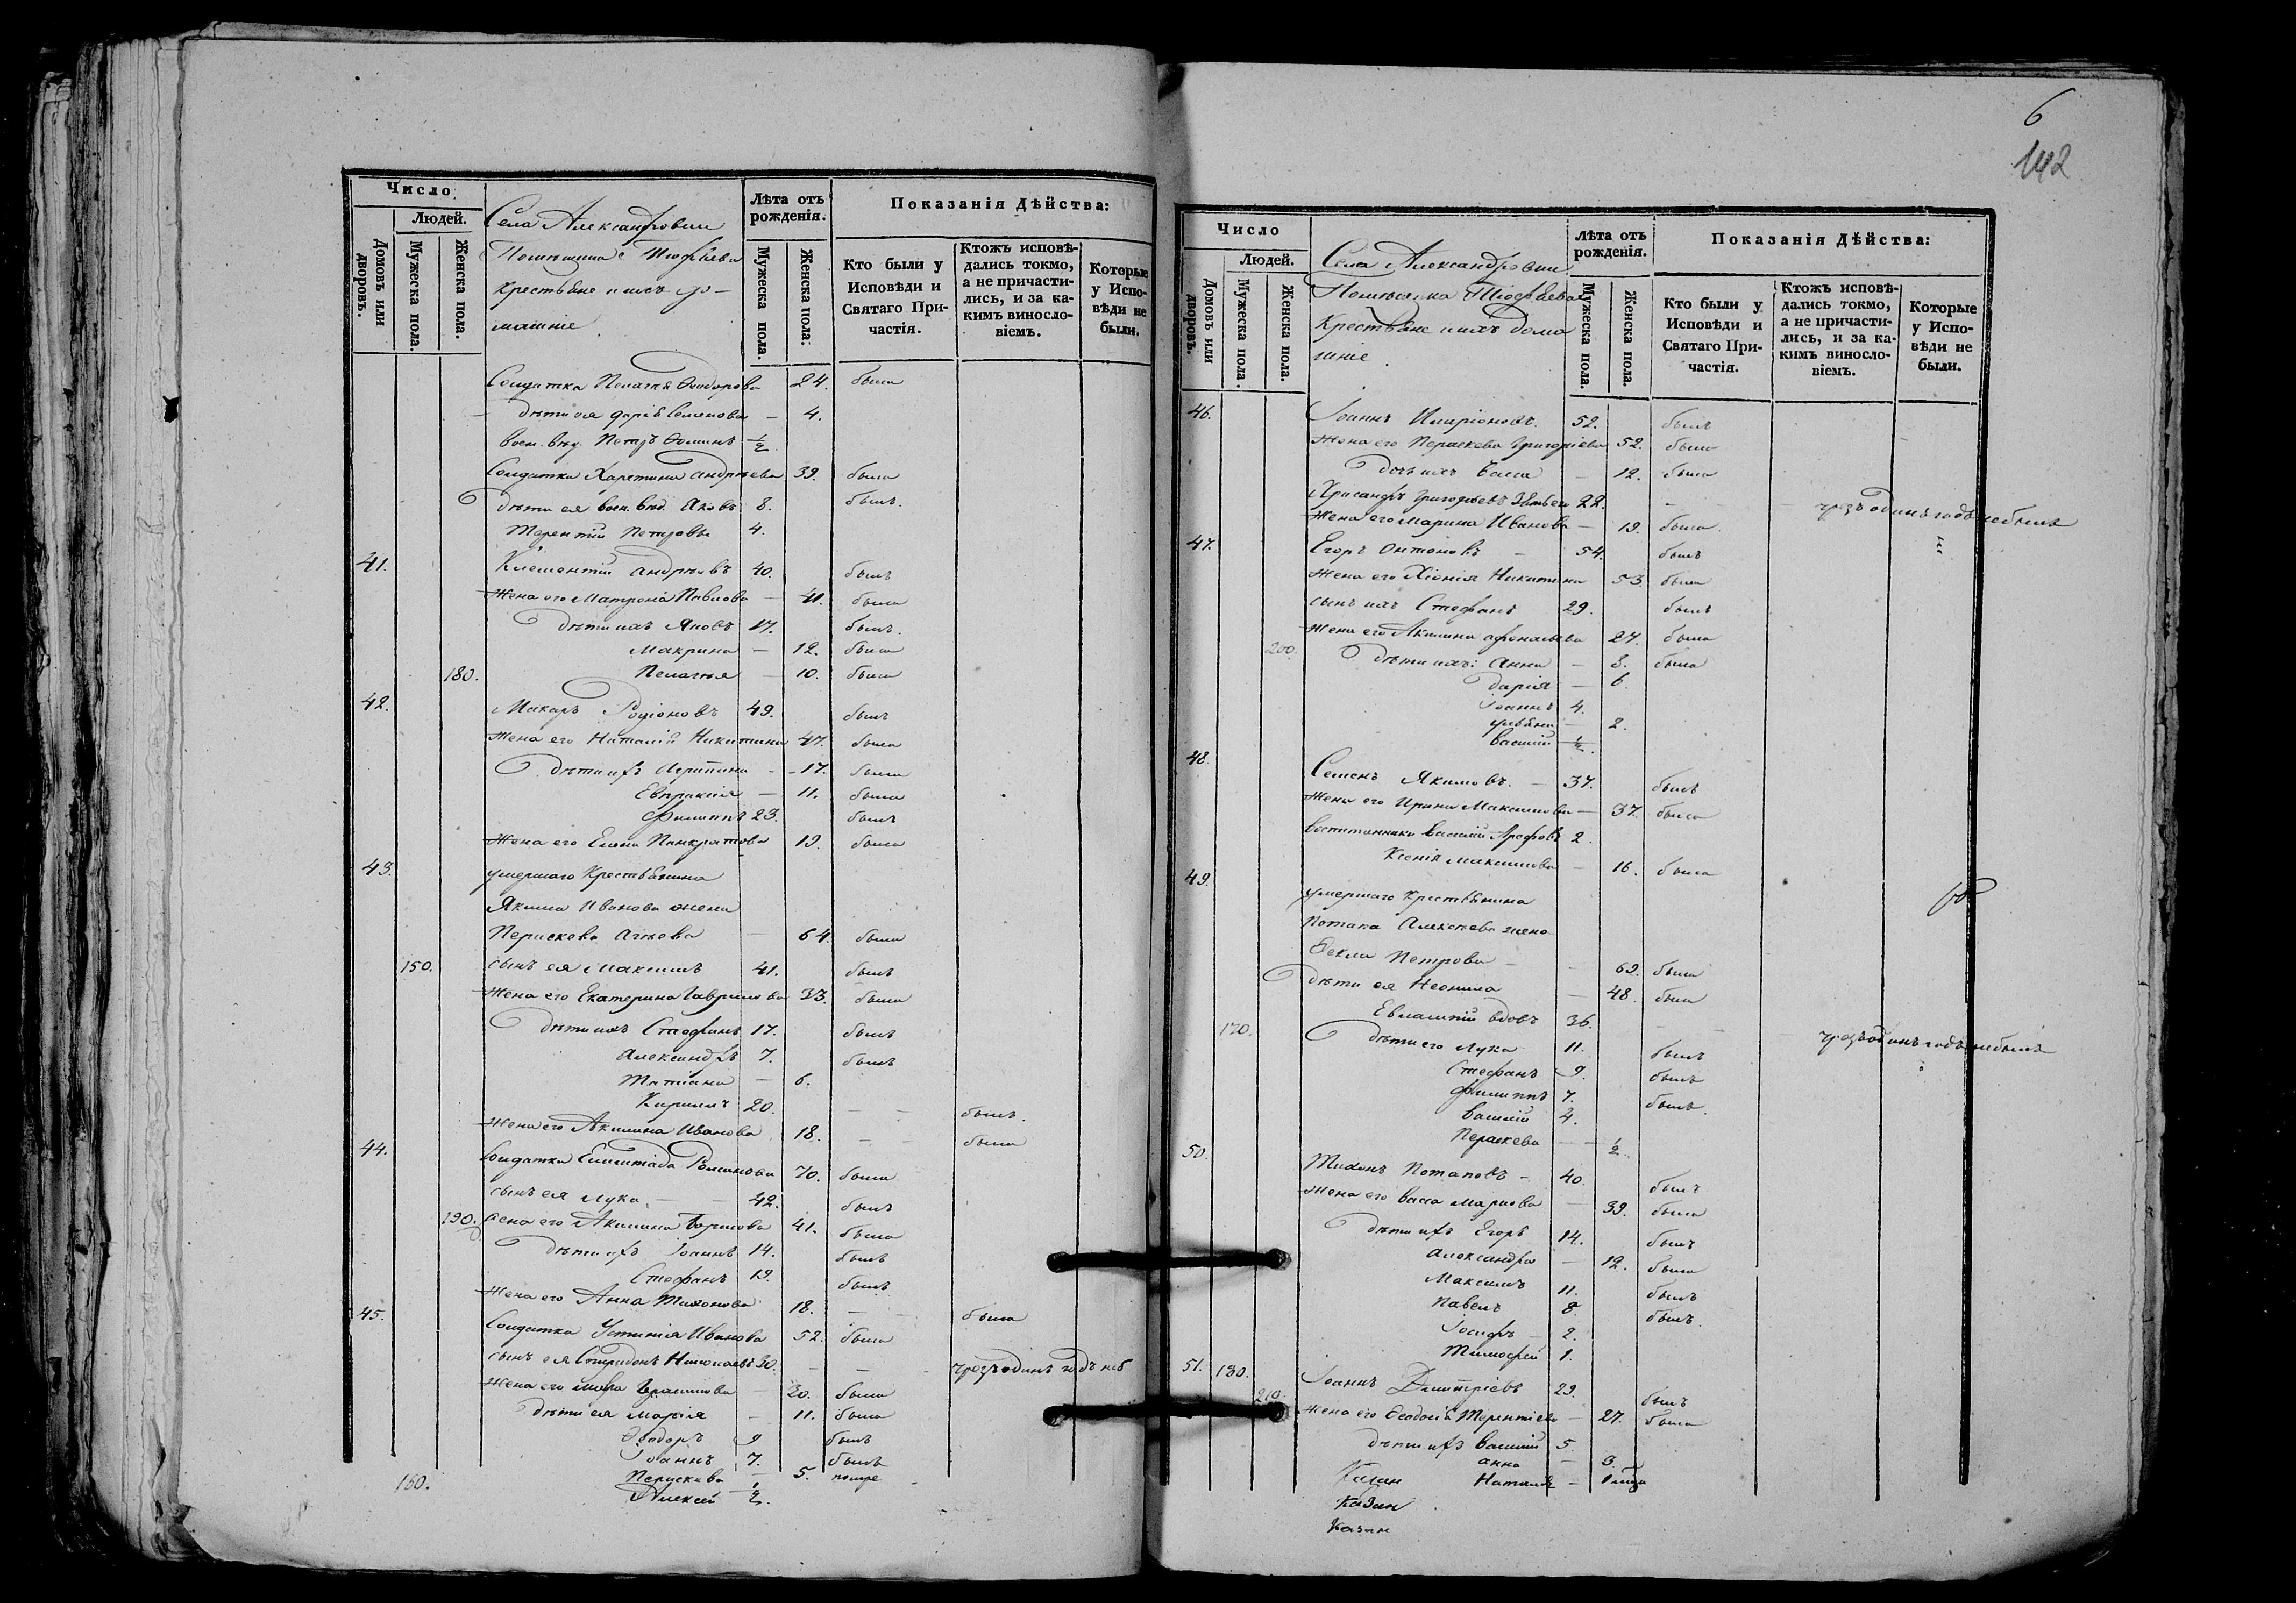 Число
Людей.
Домовъ или дворовъ.
Мужеска пола.
Женска пола.
Села Александровки
Помѣщика Тюфяева
крестьяне и ихъ до-
машніе.
Лѣта отъ рожденія.
Мужеска пола.
Женска пола.
Показанія Дѣйства:
Кто были у Исповѣди и Святаго Причастія.
Ктожъ исповѣдались токмо, а не причастились, и за какимъ винословіемъ.
Которые у Исповѣди не были.
Солдатка Пелагея Ѳеодорова 24. была
дѣти ея Дарія Семенова — 4.
воен. вѣд. Петръ Ѳоминъ ½
Солдатка Харитина Андрѣева 39. была
дѣти ея воен. вѣд. Яковъ 8. былъ.
Терентій Петровы 4.
41. Климентій Андрѣевъ 40. былъ
жена его Матрона Павлова — 41. была
дѣти ихъ Яковъ 17. былъ.
Макрина — 12. была
180. Пелагея — 10. была
42. Макаръ Родіоновъ 49. былъ
жена его Наталія Никитина 47. была
дѣти ихъ — 17. была
Евпраксія — 11. была
Филиппъ 23. былъ
Жена его Елена Панкратова 19. была
43. умершаго Крестьянина
Якима Иванова жена
Пераскева — 64. была
150. сынъ ея Максимъ 41. былъ
жена его Екатерина Гаврилова 33. была
дѣти ихъ Стефанъ 17. былъ
Александръ 7. былъ
Татіана — 6.
Кириллъ 20. — — былъ.
жена его Акилина Иванова 18. — — была
44. Солдатка Романова 70. была
сынъ ея Лука — 42. былъ
190. жена его Акилина 41. была
дѣти ихъ Іоаннъ 14. былъ
Стефанъ 19. былъ
Жена его Анна Тихонова 18. — была
45. Солдатка Устинія Иванова 52. была
сынъ ея Спиридонъ Николаевъ 30. — — чрезъ одинъ годъ не б
жена его Мавра 30. была
дѣти ея Марія — 11. была
Ѳеодоръ 9 былъ
Іоаннъ 7. былъ
Пераскева — 5.
160. Алексей ½.
6
142
Число
Людей.
Домовъ или дворовъ.
Мужеска пола.
Женска пола.
Села Александровки
Помѣщика Тюфяева
Крестьяне и ихъ дома
шніе.
Лѣта отъ рожденія.
Мужеска пола.
Женска пола.
Показанія Дѣйства:
Кто были у Исповѣди и Святаго Причастія.
Ктожъ исповѣдались токмо, а не причастились, и за какимъ винословіемъ.
Которые у Исповѣди не были.
46. Іоаннъ Иларіоновъ. 52. былъ
жена его Пераскева Григоріева 52. была
дочь ихъ Васса — 12. была
Хрисанфъ Григорьевъ 22. — чрезъ одинъ годъ не былъ
жена его Марина Иванова — 19. была.
47. Егоръ Антоновъ — 54. былъ
жена его Хіонія Никитина 53. была
сынъ ихъ Стефанъ 29. былъ
жена его Акилина Афонасьева 27. была
200. дѣти ихъ: Анна — 8. была
Дарія — 6.
Іоаннъ 4.
Ульяна — 2.
Василій ½.
48. Семенъ Якимовъ. — 37. былъ
жена его Ирина Максимова — 37. была
воспитанники Василій 2.
Ксенія Максимова — 16. была
49. умершаго Крестьянина
Потапа Алексеева жена
Ѳекла Петрова — — 69. была
дѣти ея Неонила — 48. была
170. Евлампій вдовъ 36. — — чрезъ одинъ годъ не былъ
дѣти его Лука 11. былъ
Стефанъ 9. былъ
Филиппъ 7. былъ.
Василій 4.
Пераскева — ½
50. Тихонъ Потаповъ — 40. былъ
жена его Васса Маркова — 39. была
дѣти ихъ Егоръ 14. былъ
Александра — 12. была
Максимъ 11. былъ
Павелъ 8. былъ.
Іосифъ — 2.
Тимофей 1.
51. 180. Іоаннъ Димитріевъ 29. былъ
210. жена его Ѳеодосія Терентіева — 27. была
дѣти ихъ Василій 5.
Анна — 3.
Казан Наталія —
Казан
Казан